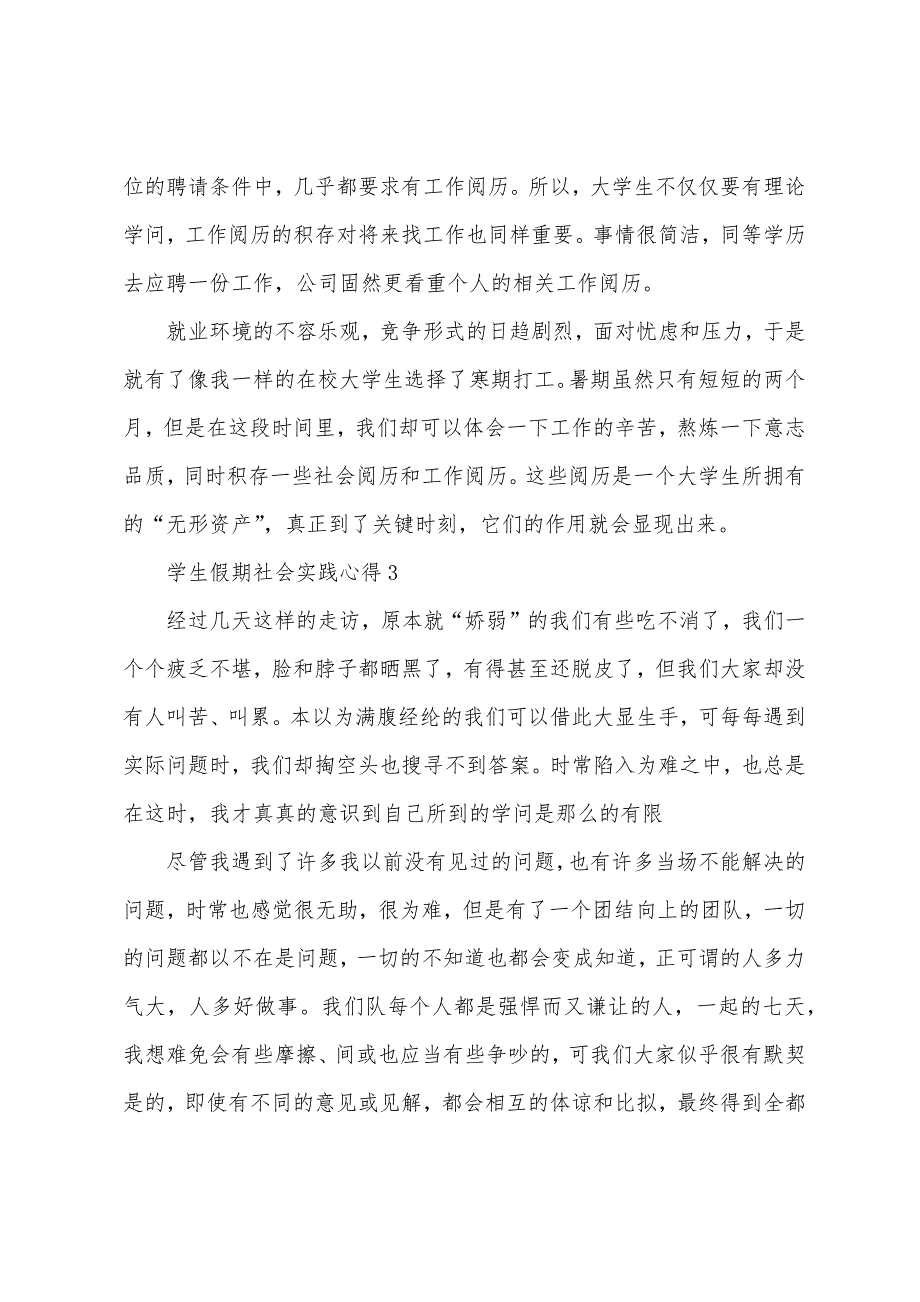 位的聘请条件中，几乎都要求有工作阅历。所以，大学生不仅仅要有理论
学问，工作阅历的积存对将来找工作也同样重要。事情很简洁，同等学历
去应聘一份工作，公司固然更看重个人的相关工作阅历。
就业环境的不容乐观，竞争形式的日趋剧烈，面对忧虑和压力，于是
就有了像我一样的在校大学生选择了寒期打工。暑期虽然只有短短的两个
月，但是在这段时间里，我们却可以体会一下工作的辛苦，熬炼一下意志
品质，同时积存一些社会阅历和工作阅历。这些阅历是一个大学生所拥有
的“无形资产”，真正到了关键时刻，它们的作用就会显现出来。
学生假期社会实践心得 3
经过几天这样的走访，原本就“娇弱”的我们有些吃不消了，我们一
个个疲乏不堪，脸和脖子都晒黑了，有得甚至还脱皮了，但我们大家却没
有人叫苦、叫累。本以为满腹经纶的我们可以借此大显生手，可每每遇到
实际问题时，我们却掏空头也搜寻不到答案。时常陷入为难之中，也总是
在这时，我才真真的意识到自己所到的学问是那么的有限
尽管我遇到了许多我以前没有见过的问题，也有许多当场不能解决的
问题，时常也感觉很无助，很为难，但是有了一个团结向上的团队，一切
的问题都以不在是问题，一切的不知道也都会变成知道，正可谓的人多力
气大，人多好做事。我们队每个人都是强悍而又谦让的人，一起的七天，
我想难免会有些摩擦、间或也应当有些争吵的，可我们大家似乎很有默契
是的，即使有不同的意见或见解，都会相互的体谅和比拟，最终得到全都